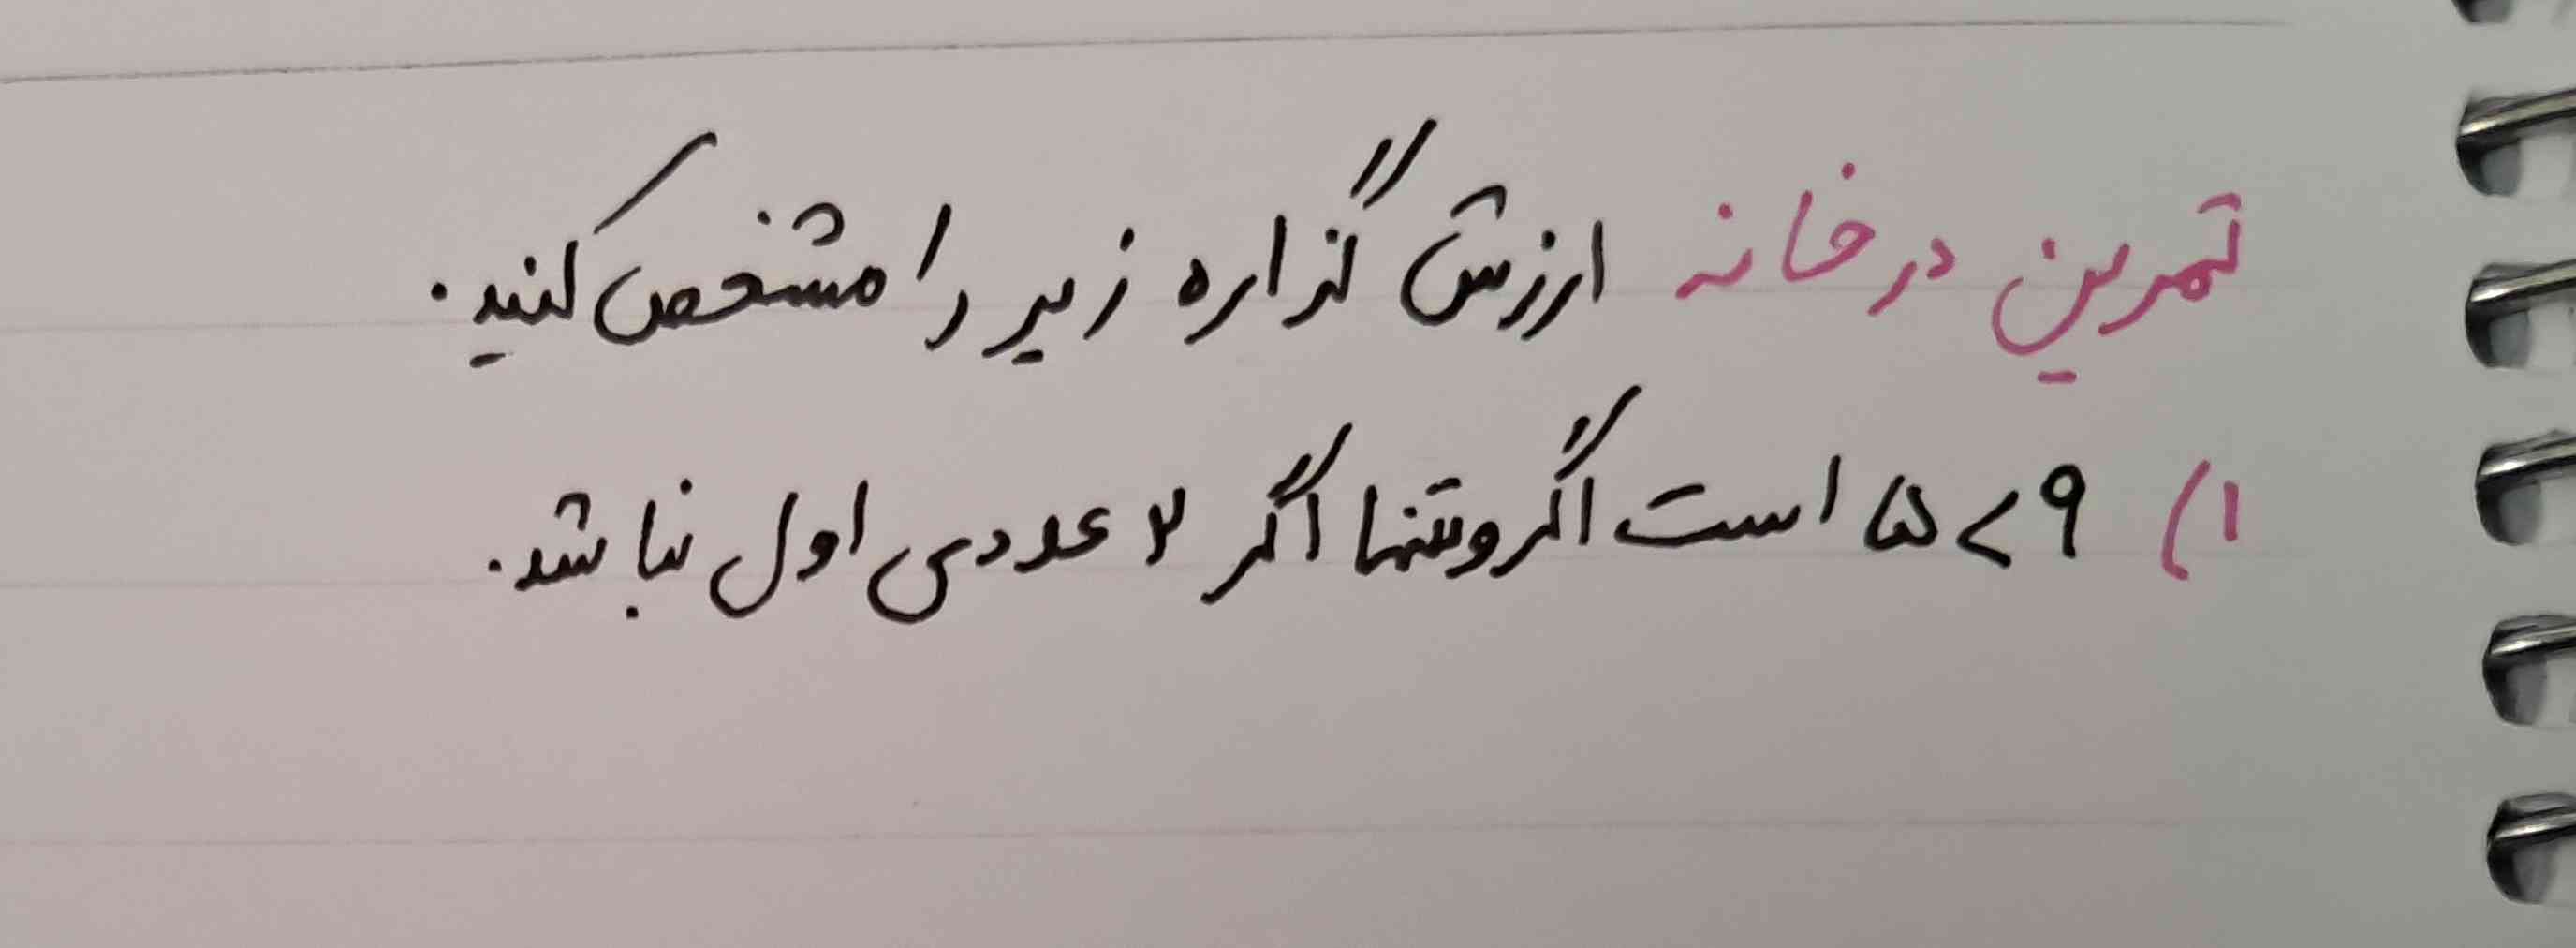 تمرین در خانه ارزش گذاره زیر را مشخص کنید.
۱) ۹ > ۵ است اگر و تنها اگر ۲ عددی اول نباشد.